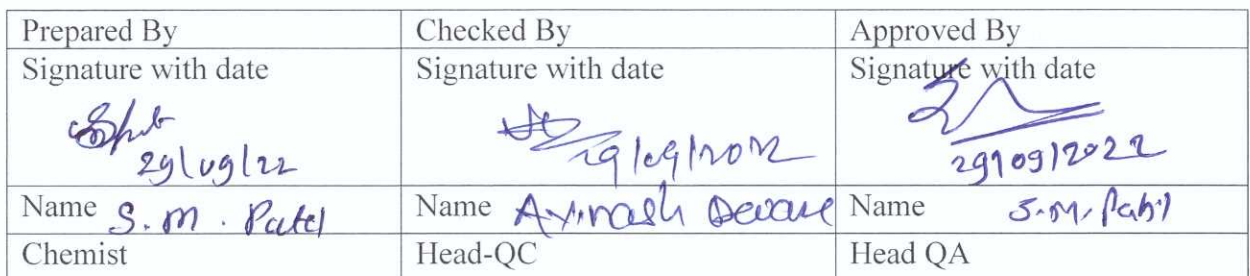 Prepared By Checked By Approved By
Signature with date Signature with date Signature with date
29/09/22 29/09/2022 29/09/2022
Name S. M. Patel Name Avinash Deware Name S. M. Patil
Chemist Head-QC Head QA